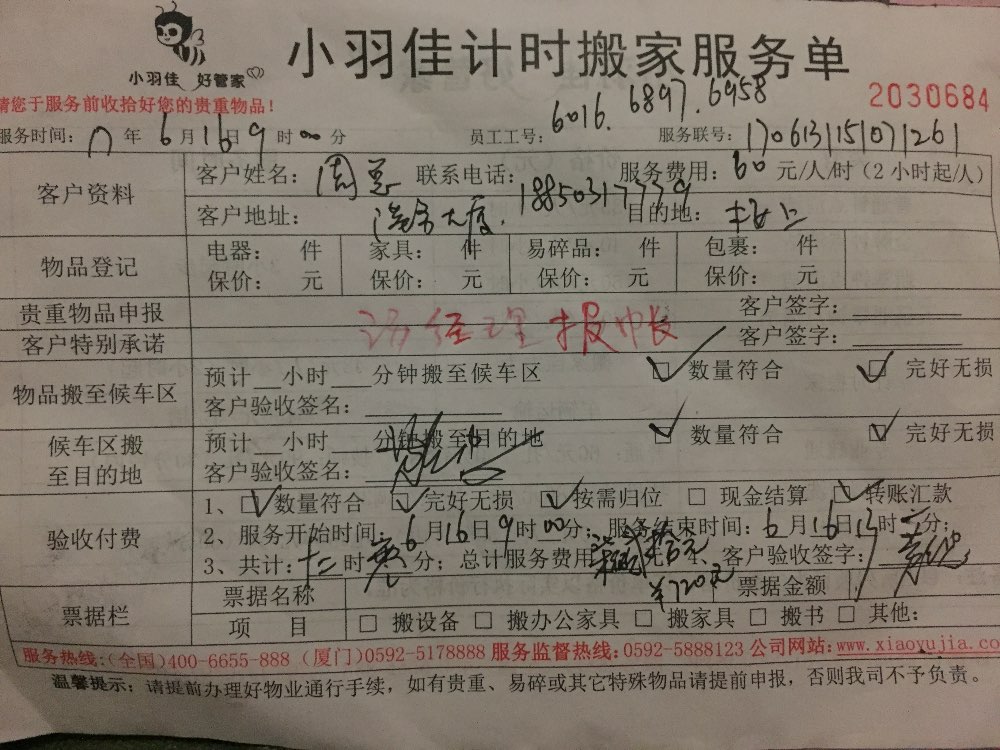 小羽佳 好管家
小羽佳计时搬家服务单
请您于服务前收拾好您的贵重物品!
2030684
服务时间: 17 年 6 月 16 日 9 时 00 分 员工工号: 6016. 6897. 6958 服务联号: 170613115107 1261
客户资料
客户姓名: 周 联系电话: 18850317339 服务费用: 60 元/人/时 (2小时起/人)
客户地址: 大厦. 目的地: 上
物品登记
电器: 件 家具: 件 易碎品: 件 包裹: 件
保价: 元 保价: 元 保价: 元 保价: 元
贵重物品申报 客户签字:
客户特别承诺 经理报帐 客户签字:
物品搬至候车区
预计 小时 分钟搬至候车区 数量符合 完好无损
客户验收签名:
候车区搬至目的地
预计 小时 分钟搬至目的地 数量符合 完好无损
客户验收签名:
验收付费
1、 数量符合 完好无损 按需归位 现金结算 转账汇款
2、服务开始时间: 6 月 16 日 9 时 00 分; 服务结束时间: 6 月 16 日 13 时 分;
3、共计: 十二 时 零 分; 总计服务费用 柒佰贰拾元 4、客户验收签字:
¥720元
票据栏
票据名称 票据金额
项 目 搬设备 搬办公家具 搬家具 搬书 其他:
服务热线:(全国)400-6655-888 (厦门)0592-5178888 服务监督热线:0592-5888123 公司网站:www.xiaoyujia.co
温馨提示: 请提前办理好物业通行手续, 如有贵重、易碎或其它特殊物品请提前申报, 否则我司不予负责。